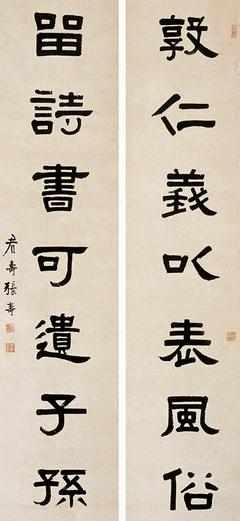 敦仁義以表風俗
留詩書可遺子孫
眉壽張壽